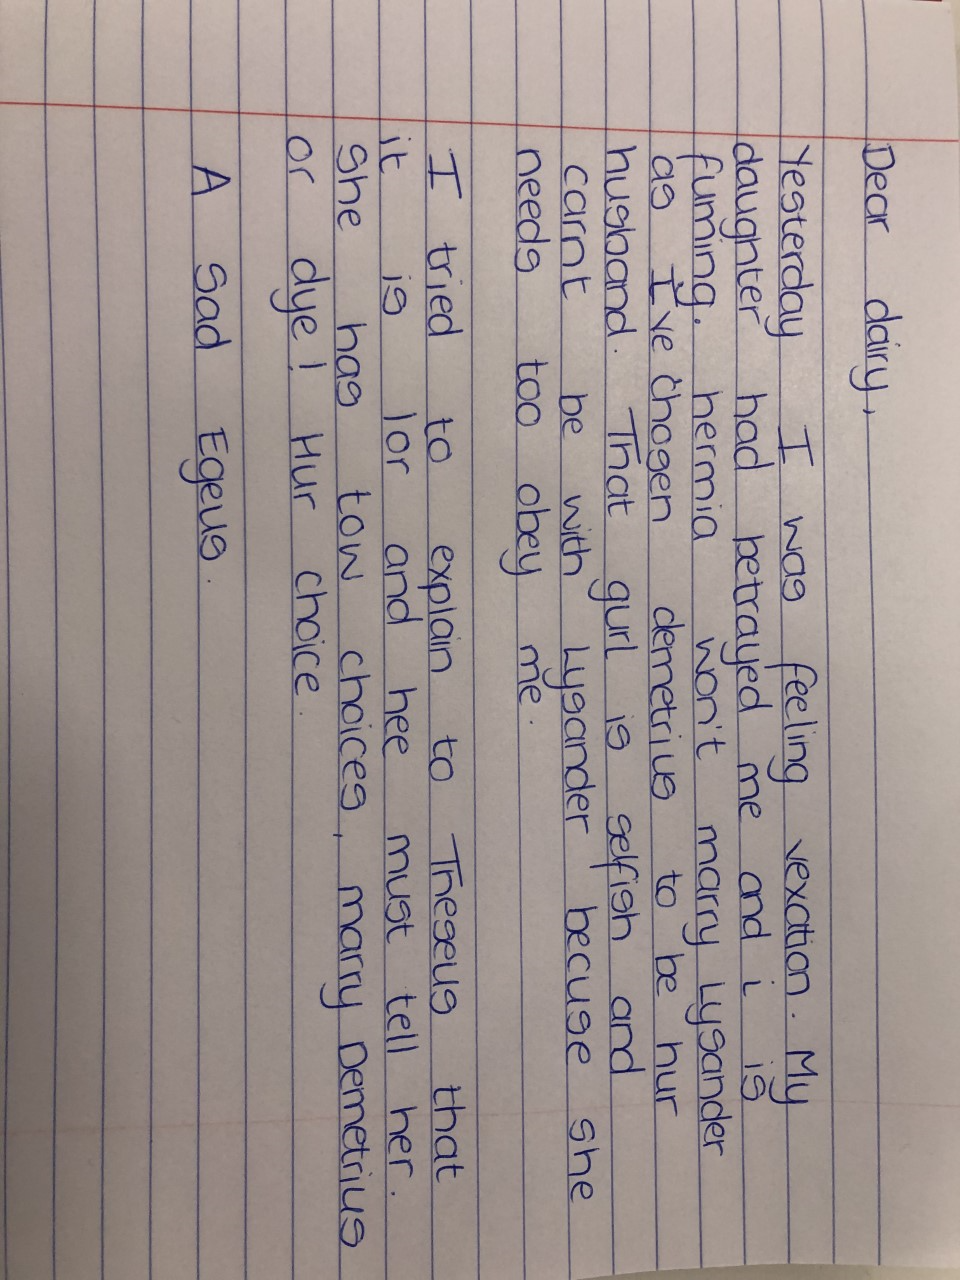 Dear dairy,
Yesterday I was feeling vexation. My
daughter had betrayed me and i is
fuming. hermia won't marry Lysander
as I've chosen demetrius to be hur
husband. That gurl is selfish and
carnt be with Lysander becuse she
needs too obey me.
I tried to explain to Theseus that
it is lor and hee must tell her.
She has tow choices, marry Demetrius
or dye! Hur choice.
A Sad Egeus.